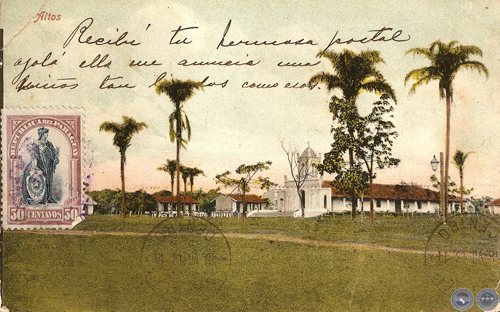 Altos
Recibí tu hermosa postal
ojalá ella me anuncia una
niños tan lindos como esos.
REPUBLICA DEL PARAGUAY
50 CENTAVOS 50